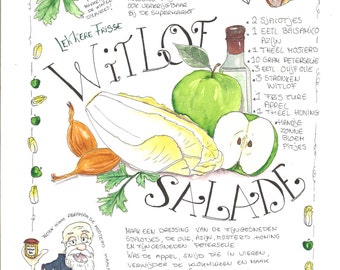 VERKRIJGBAAR
BIJ DE SUPERMARKT
LEKKERE FRISSE
WITLOF
SALADE
2 SJALOTJES
1 EETL BALSAMICO
AZIJN
1 THEEL MOSTERD
10 GRAM PETERSELIE
3 EETL OLIJFOLIE
3 STRONKEN
WITLOF
1 FRISZURE
APPEL
1 THEEL HONING
HANDJE
ZONNE
BLOEM
PITJES
MAAK EEN DRESSING VAN DE FIJNGESNEDEN
SJALOTJES, DE OLIE, AZIJN, MOSTERD, HONING
EN FIJNGESNEDEN PETERSELIE
WAS DE APPEL, SNIJD DIE IN VIEREN,
VERWIJDER DE KLOKHUIZEN EN MAAK